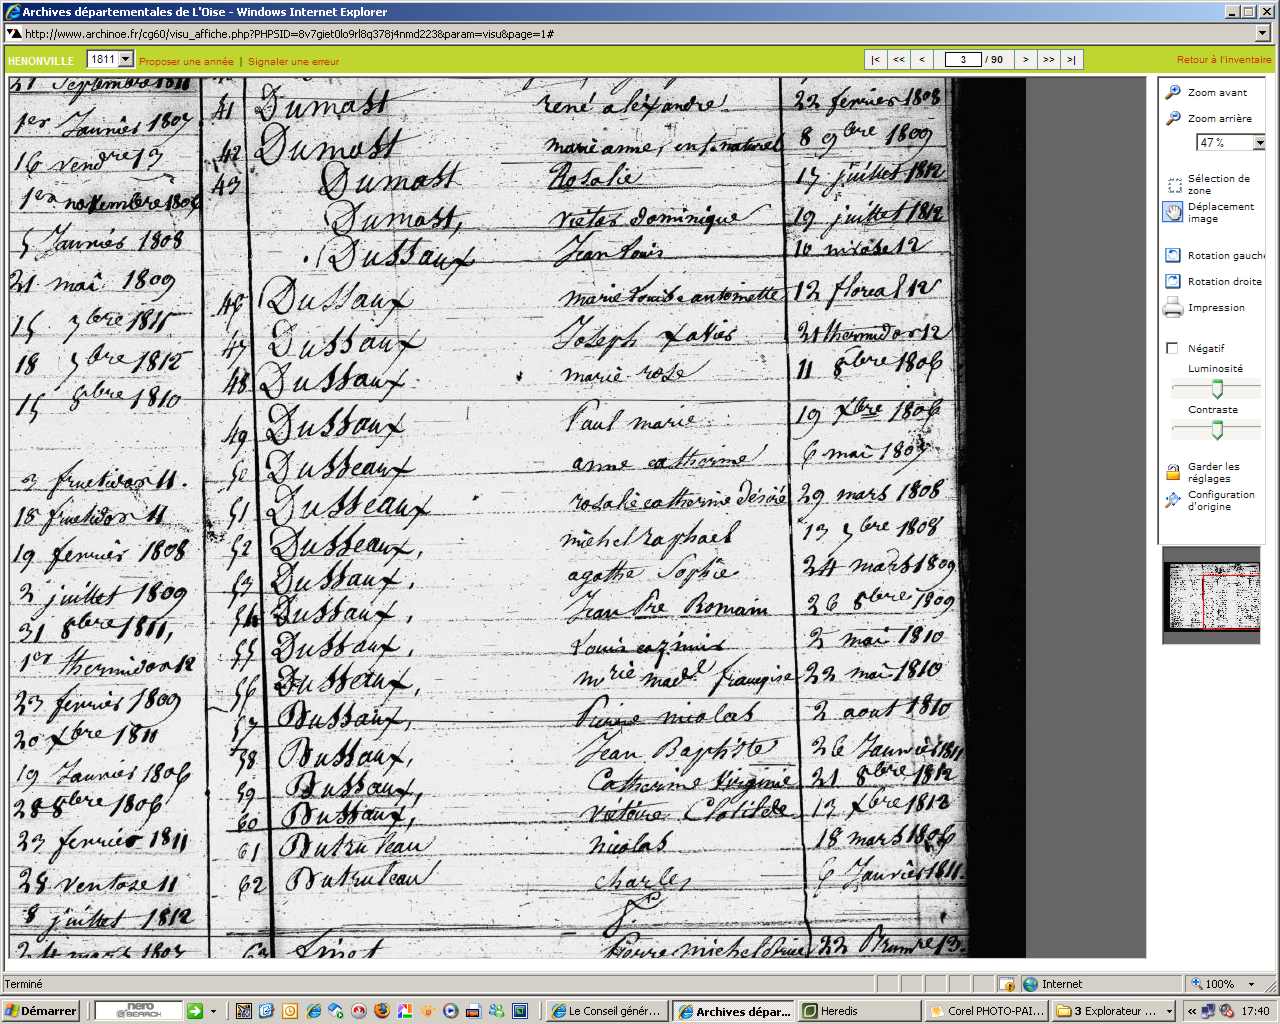 Archives départementales de L'Oise - Windows Internet Explorer
http://www.archinoe.fr/cg60/visu_affiche.php?PHPSID=8v7giet0lo9rl8q378j4nmd223&param=visu&page=1#
HENONVILLE 1811 Proposer une année | Signaler une erreur |< << < 3 / 90 > >> >| Retour à l'inventaire
21 Septembre 1811
1er Janvier 1807
16 vendre 13
1er novembre 1806
5 Janvier 1808
21 mai 1809
15 7bre 1811
18 7bre 1812
15 8bre 1810
3 fructidor 11.
18 fructidor 11
19 fevrier 1808
2 juillet 1809
31 8bre 1811,
1er thermidor 12
23 fevrier 1809
20 xbre 1811
19 Janvier 1806
28 8bre 1806
23 fevrier 1811
28 ventose 11
8 juillet 1812
24 mars 1807
41 Dumast rené alexandre 22 fevrier 1808
42 Dumast marie anne, enf. naturel 8 9bre 1809
43 Dumast Rosalie 17 juillet 1812
Dumast, victor dominique 19 juillet 1812
Dussaux Jean Louis 10 nivose 12
46 Dussaux marie Louise antoinette 12 floreal 12
47 Dussaux Joseph xavier 21 thermidor 12
48 Dussaux marie rose 11 8bre 1806
49 Dussaux Paul marie 19 xbre 1806
50 Dusseaux anne catherine 6 mai 1807
51 Dusseaux rosalie catherine désirée 29 mars 1808
52 Dusseaux, michel raphael 13 7bre 1808
53 Dussaux, agathe Sophie 24 mars 1809
54 Dussaux, Jean Pre Romain 26 8bre 1809
55 Dussaux, Louis cazimir 2 mai 1810
56 Dusseaux, mrie madel françoise 22 mai 1810
57 Dussaux, Pierre nicolas 2 aout 1810
58 Dussaux, Jean Baptiste 26 Janvier 1811
59 Dussaux, Catherine Virginie 21 8bre 1812
60 Dussaux, victoire Clotilde 13 xbre 1812
61 Dutruleau nicolas 18 mars 1806
62 Dutruleau charles 6 Janvier 1811.
63 Finet Pierre michel 22 Brumre 13
Zoom avant
Zoom arrière
47 %
Sélection de
zone
Déplacement
image
Rotation gauche
Rotation droite
Impression
Négatif
Luminosité
Contraste
Garder les
réglages
Configuration
d'origine
Terminé Internet 100%
Démarrer nero SEARCH Le Conseil génér... Archives dépar... Heredis Corel PHOTO-PAI... 3 Explorateur ... 17:40